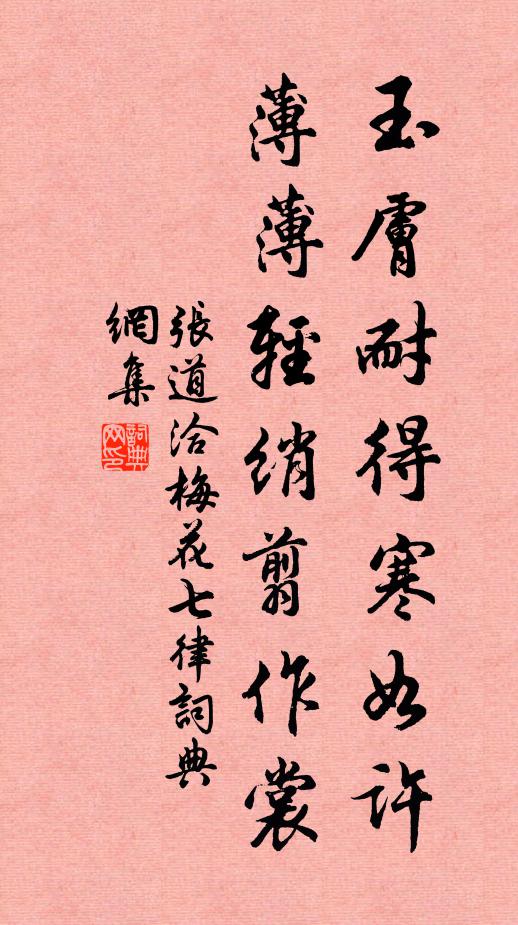 玉膚耐得寒如許
薄薄輕綃剪作裳
張道洽梅花七律詞典
網集
詞典
网印